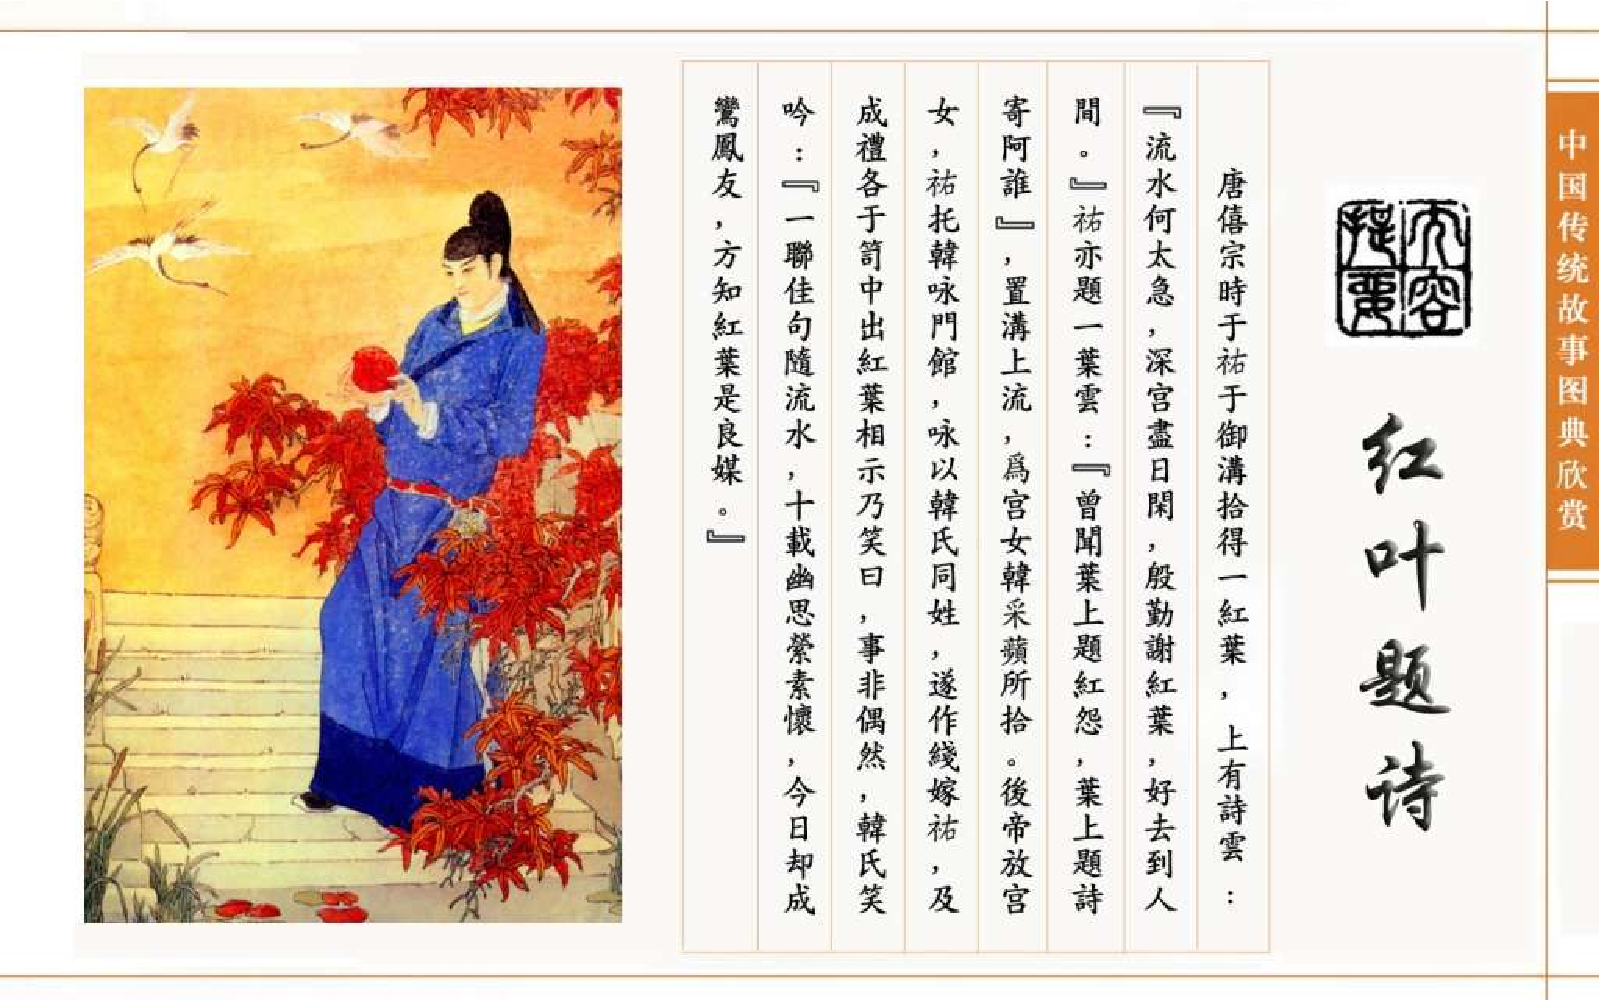 中国传统故事图典欣赏
红叶题诗
唐僖宗時于祐于御溝拾得一紅葉，上有詩雲：
『流水何太急，深宫盡日閑，殷勤謝紅葉，好去到人
間。』祐亦題一葉雲：『曾聞葉上題紅怨，葉上題詩
寄阿誰』，置溝上流，爲宫女韓采蘋所拾。後帝放宫
女，祐托韓咏門館，咏以韓氏同姓，遂作綫嫁祐，及
成禮各于笥中出紅葉相示乃笑曰，事非偶然，韓氏笑
吟：『一聯佳句隨流水，十載幽思縈素懷，今日却成
鸞鳳友，方知紅葉是良媒。』